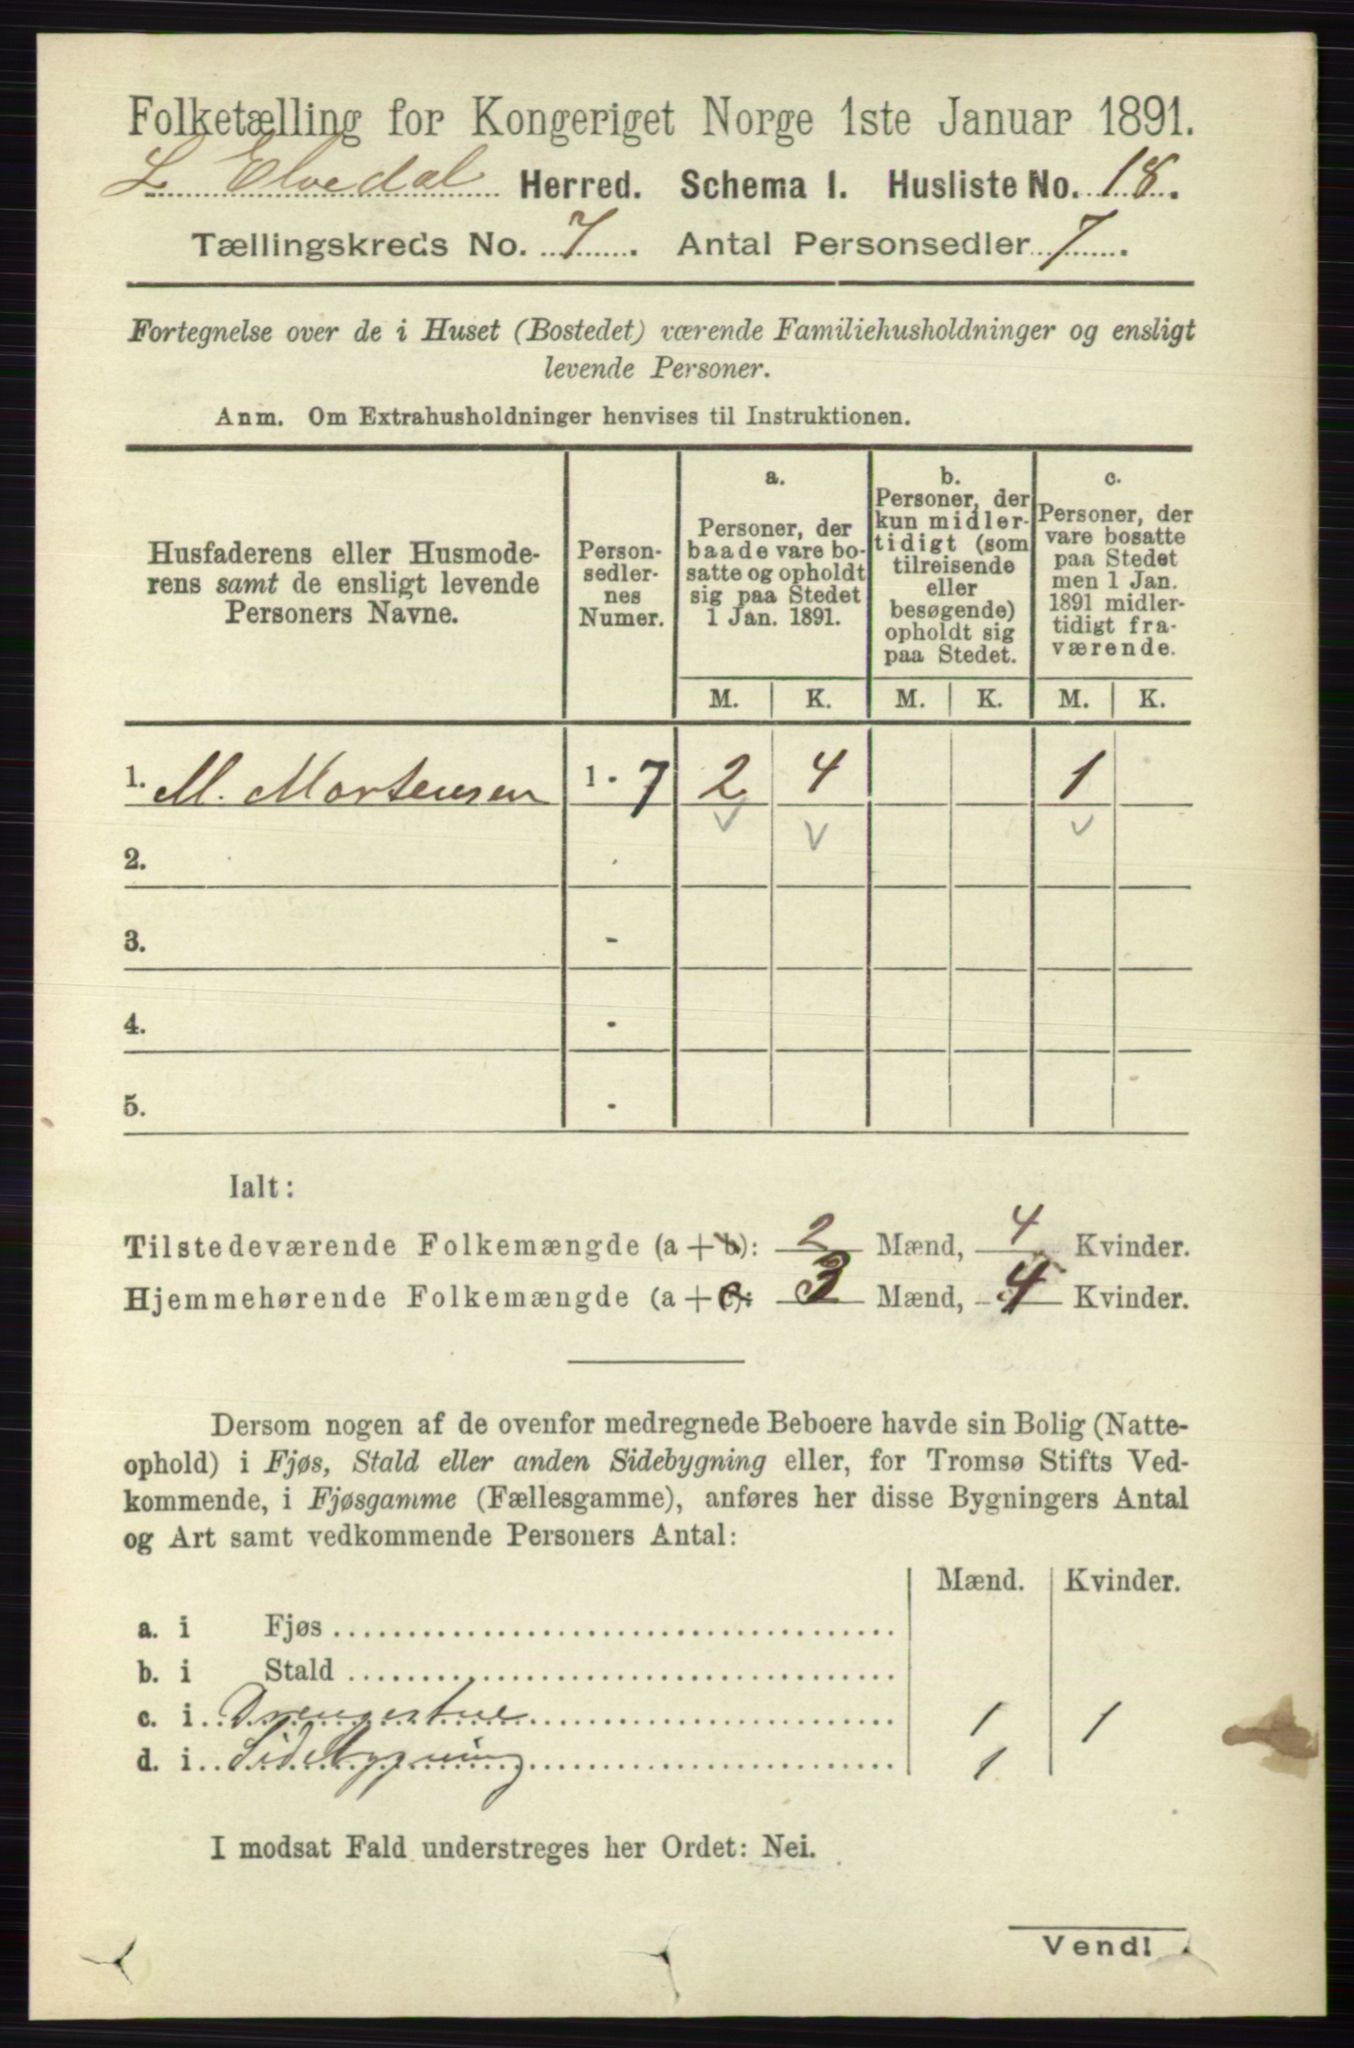 Folketælling for Kongeriget Norge 1ste Januar 1891.
L. Elvedal Herred. Schema I. Husliste No. 18.
Tællingskreds No. 7. Antal Personsedler 7.
Fortegnelse over de i Huset (Bostedet) værende Familiehusholdninger og ensligt
levende Personer.
Anm. Om Extrahusholdninger henvises til Instruktionen.
Husfaderens eller Husmode-
rens samt de ensligt levende
Personers Navne.
Person-
sedler-
nes
Numer.
a.
Personer, der
baade vare bo-
satte og opholdt
sig paa Stedet
1 Jan. 1891.
b.
Personer, der
kun midler-
tidigt (som
tilreisende
eller
besøgende)
opholdt sig
paa Stedet.
c.
Personer, der
vare bosatte
paa Stedet
men 1 Jan.
1891 midler-
tidigt fra-
værende.
M. K. M. K. M. K.
1. M. Mortensen 1 - 7 2 4 1
2.
3. -
4. -
5. -
Ialt:
Tilstedeværende Folkemængde (a + b): 2 Mænd, 4 Kvinder.
Hjemmehørende Folkemængde (a + c): 3 Mænd, 4 Kvinder.
Dersom nogen af de ovenfor medregnede Beboere havde sin Bolig (Natte-
ophold) i Fjøs, Stald eller anden Sidebygning eller, for Tromsø Stifts Ved-
kommende, i Fjøsgamme (Fællesgamme), anføres her disse Bygningers Antal
og Art samt vedkommende Personers Antal:
Mænd. Kvinder.
a. i Fjøs
b. i Stald
c. i Drengestue 1 1
d. i Sidebygning 1
I modsat Fald understreges her Ordet: Nei.
Vend!